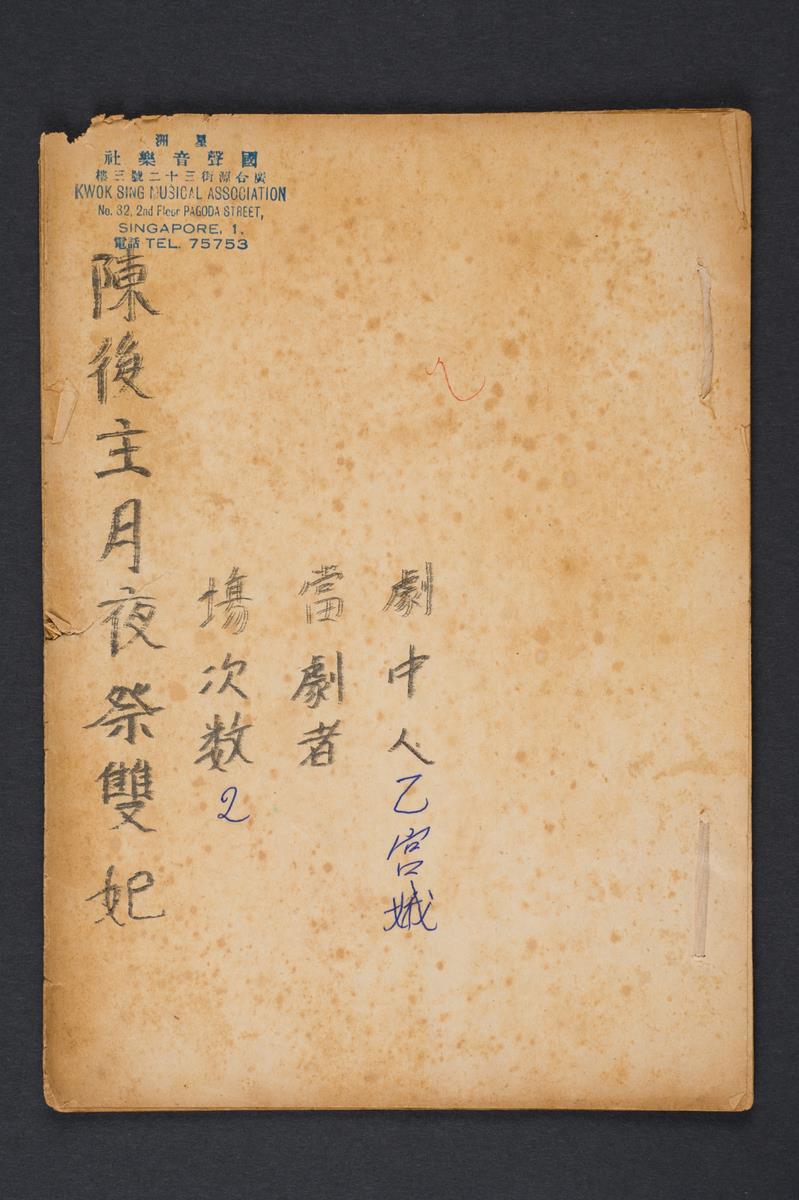 星洲
國聲音樂社
廣合源街三十二號三樓
KWOK SING MUSICAL ASSOCIATION
No. 32, 2nd Floor PAGODA STREET,
SINGAPORE, 1.
電話 TEL. 75753
劇中人乙宮娥
當劇者
塲次数2
陳後主月夜祭雙妃